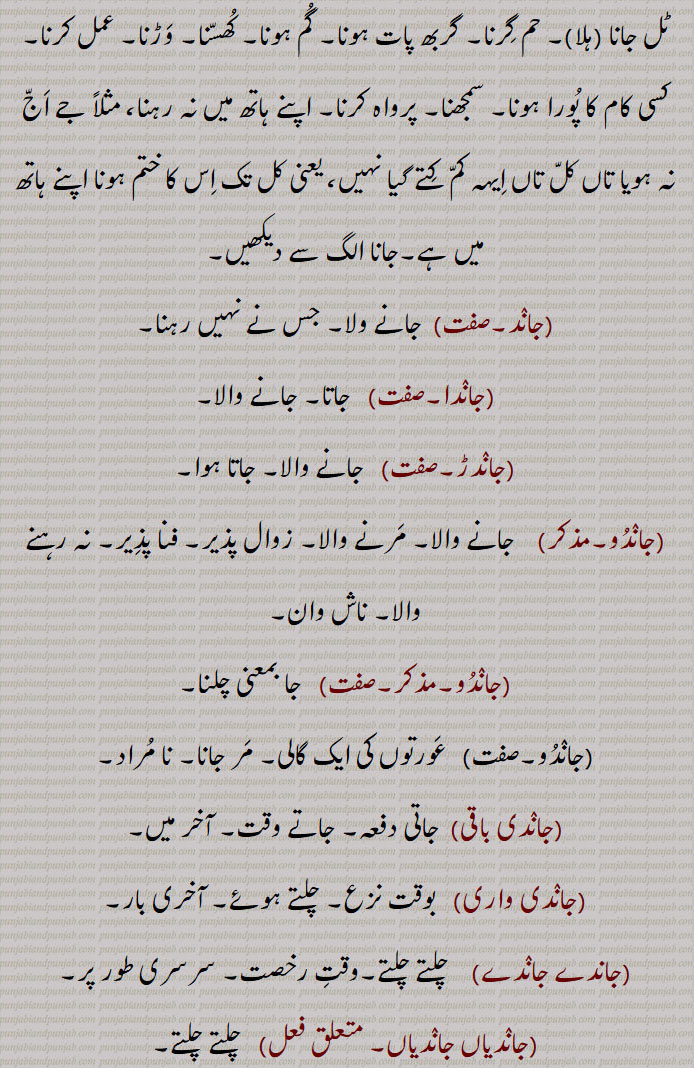 ٹل جانا (ہلا)۔ حم گِرنا۔ گربھ پات ہونا۔ گُم ہونا۔ کُھسّنا۔ وَڑنا۔ عمل کرنا۔
کسی کام کا پُورا ہونا۔ سمجھنا۔ پرواہ کرنا۔ اپنے ہاتھ میں نہ رہنا، مثلاً جے اَجّ
نہ ہویا تاں کلّ تاں اِیہہ کمّ کِتے گیا نہیں، یعنی کل تک اِس کا ختم ہونا اپنے ہاتھ
میں ہے۔ جانا الگ سے دیکھیں۔
(جان٘د۔صفت) جانے ولا۔ جس نے نہیں رہنا۔
(جان٘دا۔صفت) جاتا۔ جانے والا۔
(جان٘دڑ۔صفت) جانے والا۔ جاتا ہوا۔
(جان٘دُو۔مذکر) جانے والا۔ مَرنے والا۔ زوال پذیر۔ فنا پذِیر۔ نہ رہنے
والا۔ ناش وان۔
(جان٘دُو۔مذکر۔صفت) جا بمعنی چلنا۔
(جان٘دُو۔صفت) عَورتوں کی ایک گالی۔ مَر جانا۔ نا مُراد۔
(جان٘دی باقی) جاتی دفعہ۔ جاتے وقت۔ آخر میں۔
(جان٘دی واری) بوقت نزع۔ چلتے ہوئے۔ آخری بار۔
(جاندے جان٘دے) چلتے چلتے۔وقتِ رخصت۔ سرسری طور پر۔
(جان٘دیاں جان٘دیاں۔ متعلق فعل) چلتے چلتے۔